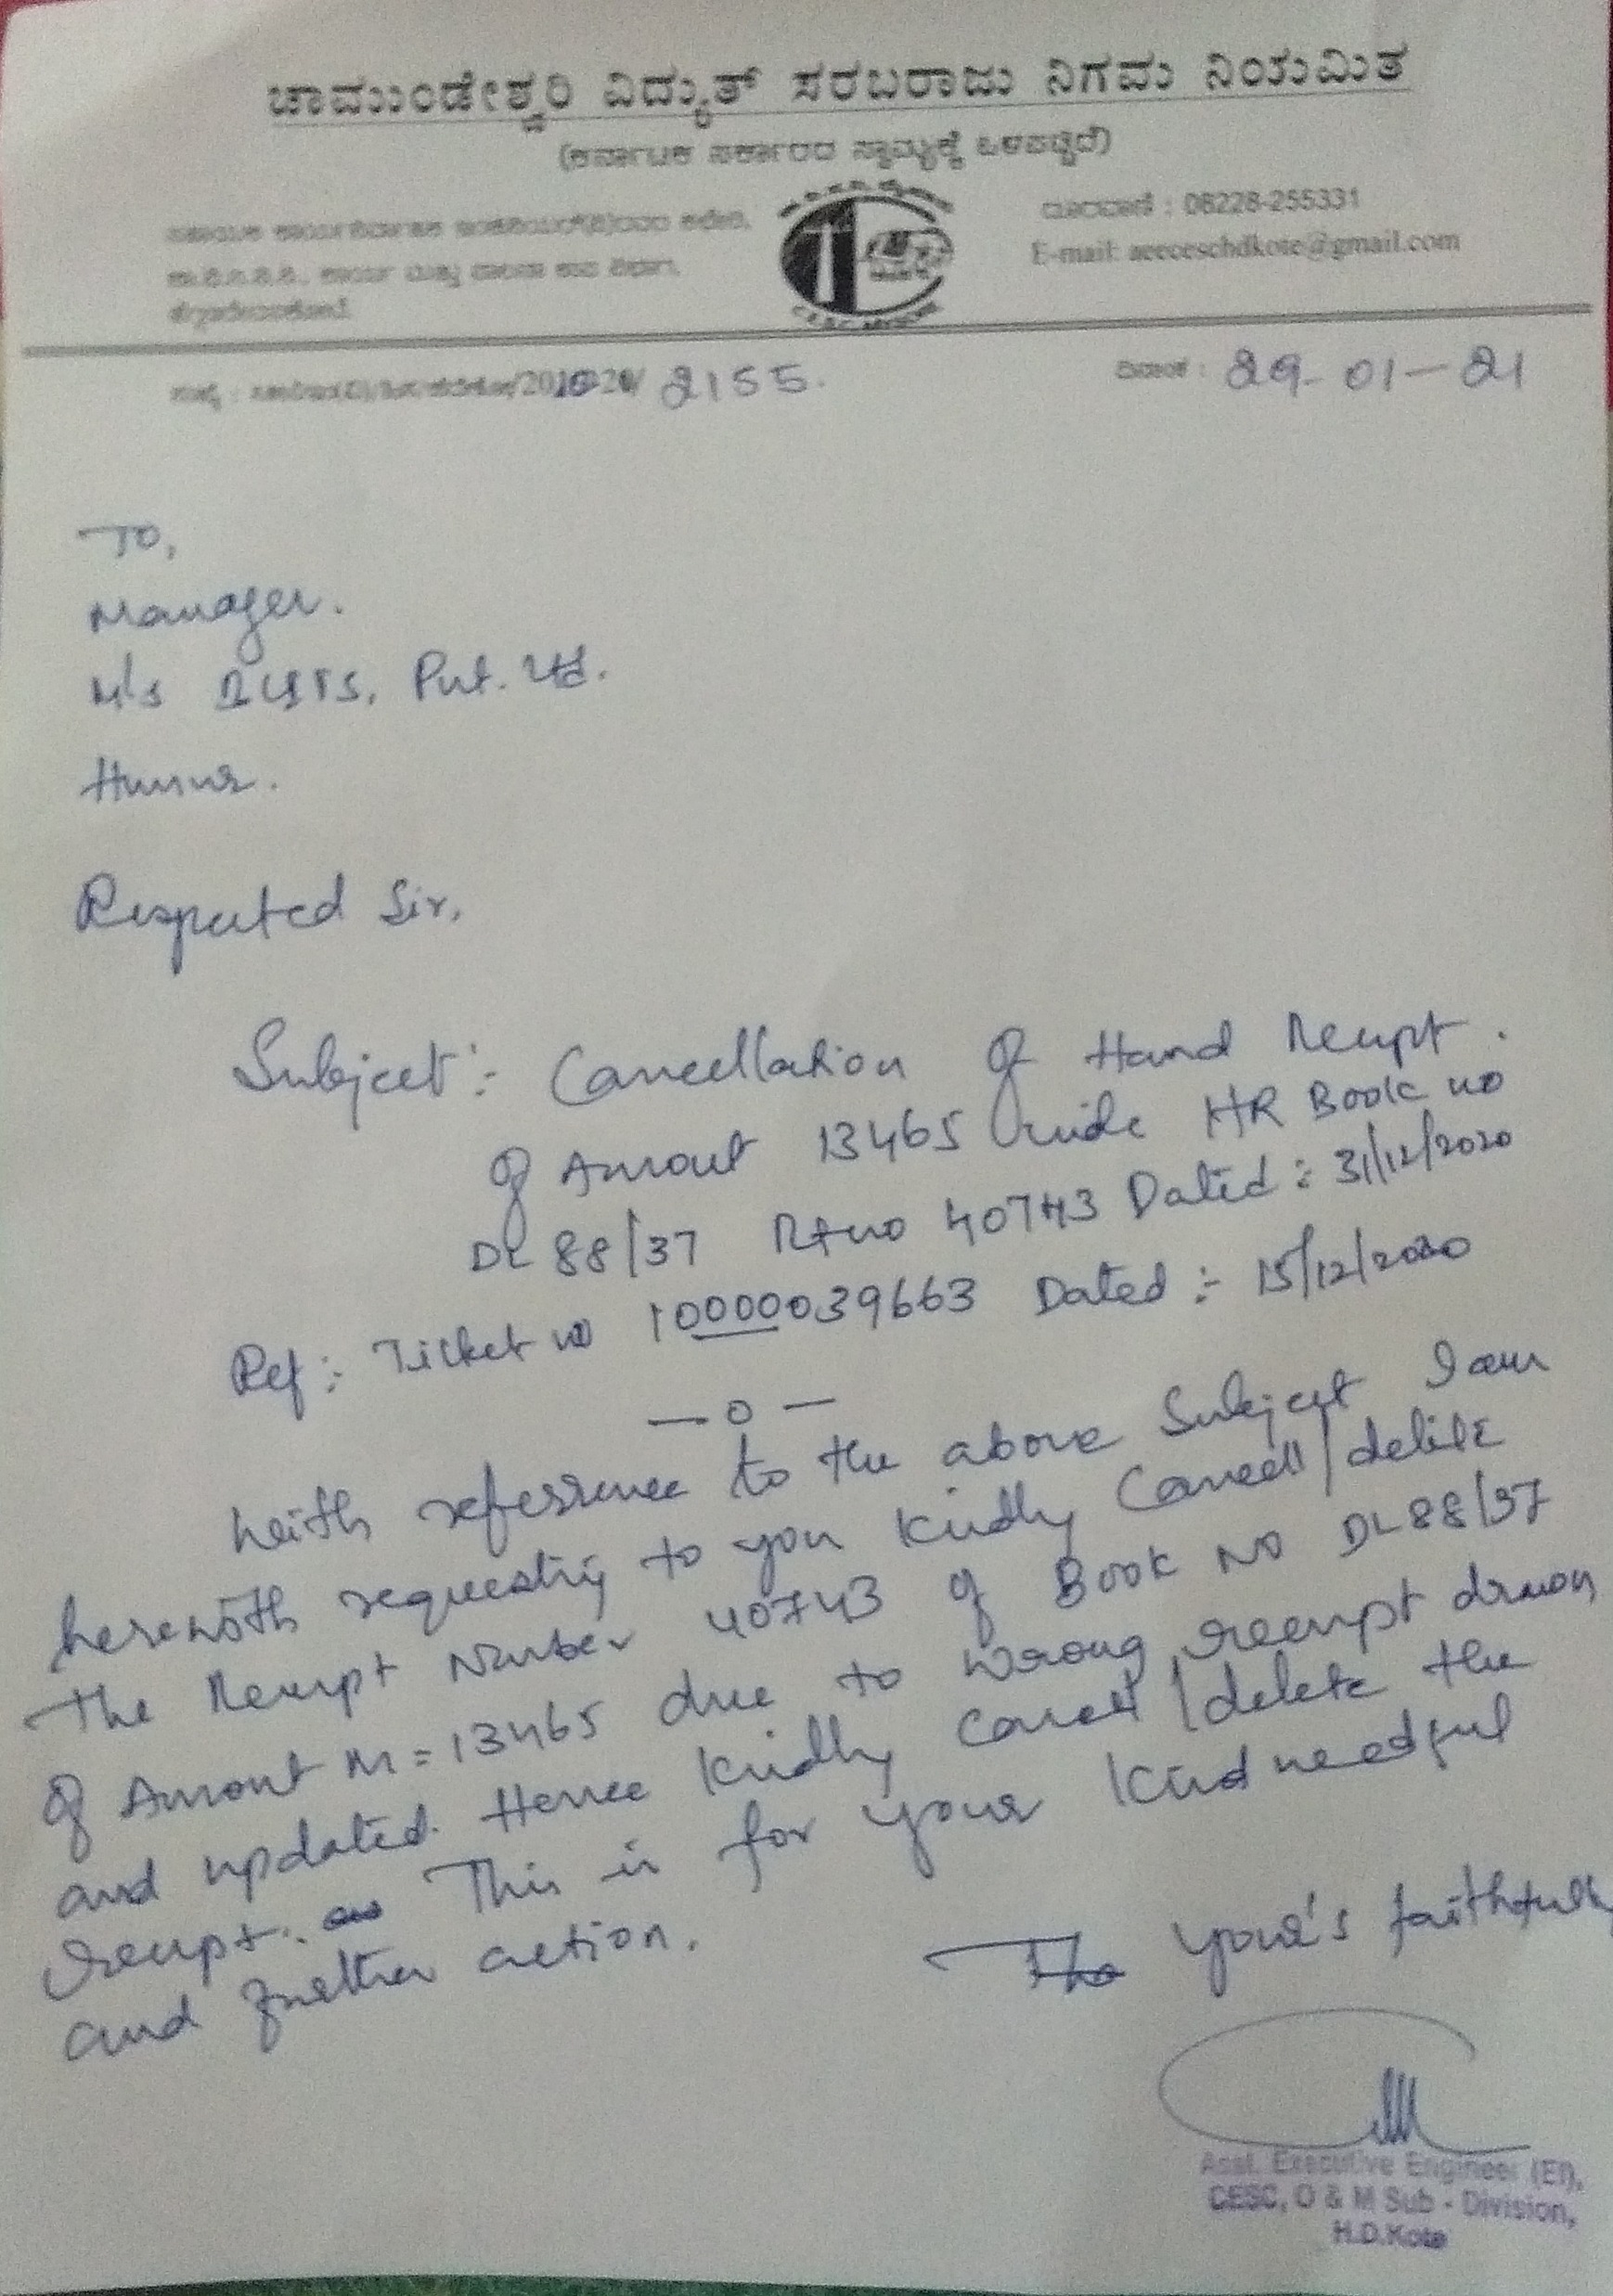 ಚಾಮುಂಡೇಶ್ವರಿ ವಿದ್ಯುತ್ ಸರಬರಾಜು ನಿಗಮ ನಿಯಮಿತ
(ಕರ್ನಾಟಕ ಸರ್ಕಾರದ ಸ್ವಾಮ್ಯಕ್ಕೆ ಒಳಪಟ್ಟಿದೆ)
ದೂರವಾಣಿ : 08228-255331
E-mail: aeeceschdkote@gmail.com
2155.
ದಿನಾಂಕ : 29-01-21
To,
Manager.
M/s Pvt. Ltd.
Hunsur.
Respected Sir,
Subject :- Cancellation Of Hand Receipt.
Of Amount 13465 vide HR Book no
DL 88/37 Rt no 40743 Dated :- 31/12/2020
Ref :- Ticket no 10000039663 Dated :- 15/12/2020
—0—
With reference to the above Subject I am
herewith requesting to you Kindly Cancell/delite
The Receipt Number 40743 of Book No DL88/37
Of Amount = 13465 due to wrong receipt drawn
and updated. Hence Kindly Cancell/delete the
receipt. This is for your Kind needful
and further action.
The Your's faithfully
Asst. Executive Engineer (El),
CESC, O & M Sub - Division,
H.D.Kote